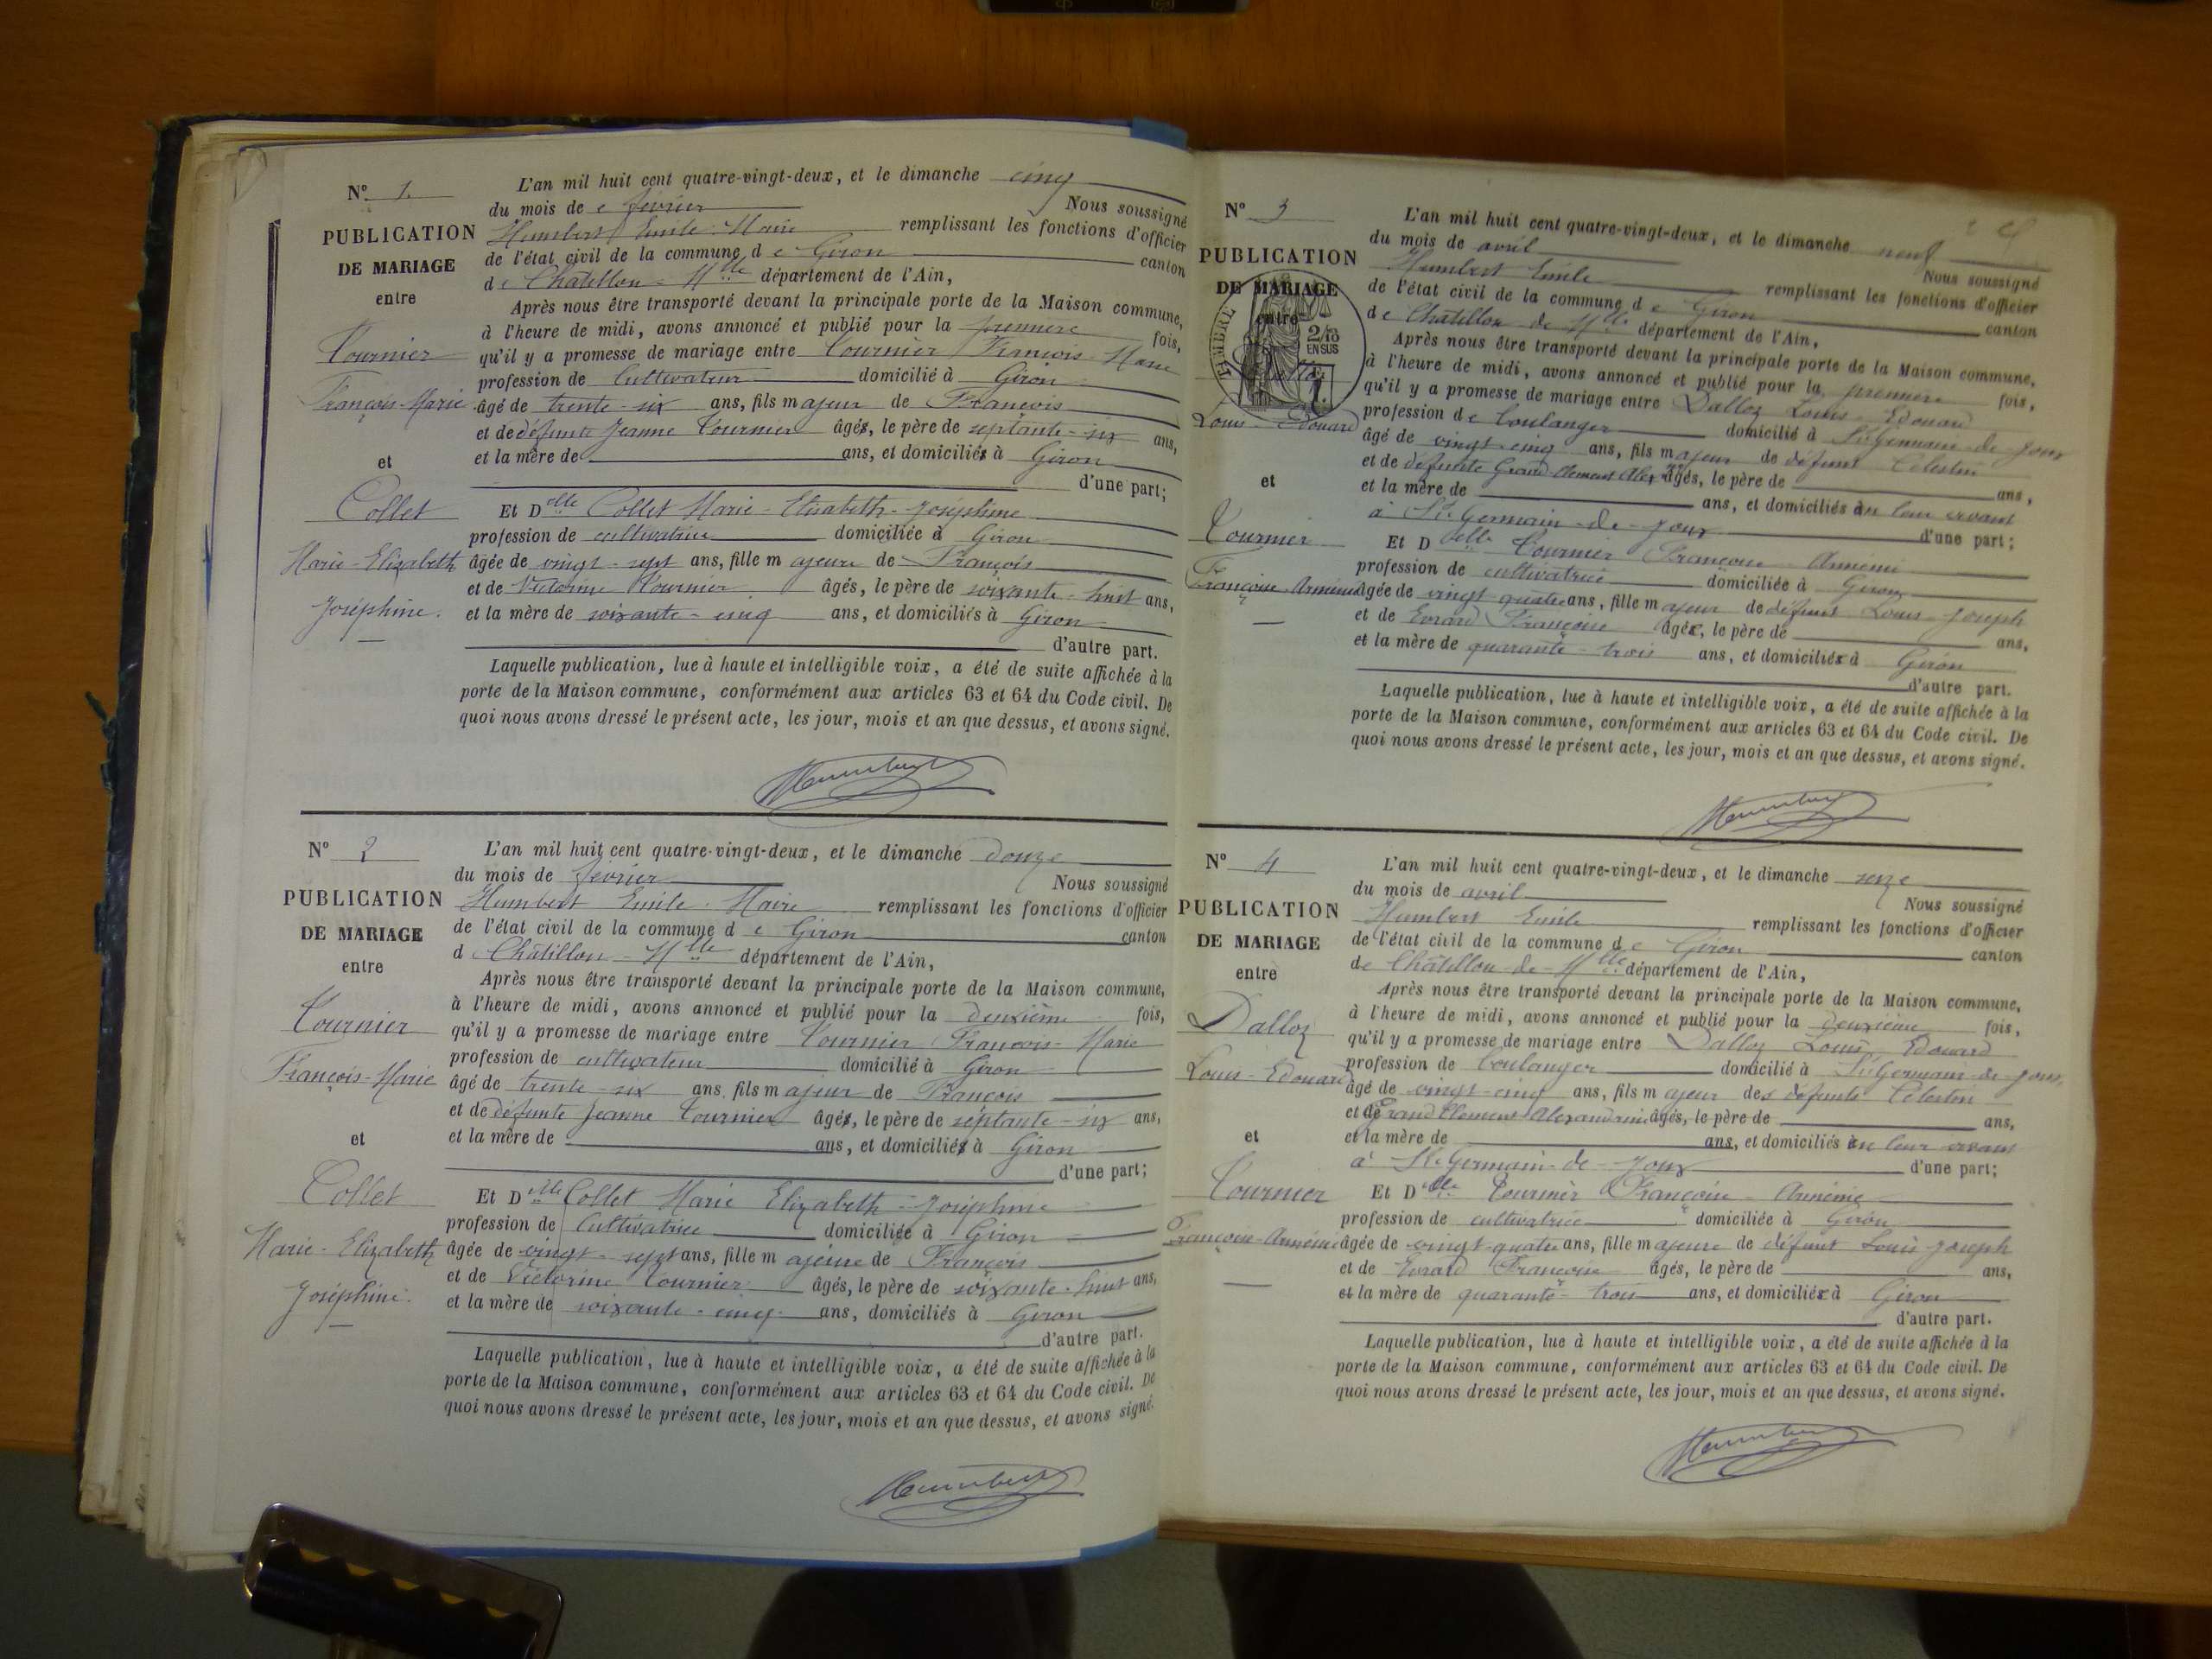 N° 1.
PUBLICATION
DE MARIAGE
entre
Tournier
François-Marie
et
Collet
Marie-Elizabeth
Joséphine.
L'an mil huit cent quatre-vingt-deux, et le dimanche cinq
du mois de février Nous soussigné
Humbert Emile Maire remplissant les fonctions d'officier
de l'état civil de la commune de Giron canton
de Châtillon-Mlle département de l'Ain,
Après nous être transporté devant la principale porte de la Maison commune,
à l'heure de midi, avons annoncé et publié pour la première fois,
qu'il y a promesse de mariage entre Tournier François-Marie
profession de Cultivateur domicilié à Giron
âgé de trente-six ans, fils majeur de François
et de défunte Jeanne Tournier âgés, le père de septante-six ans,
et la mère de ans, et domiciliés à Giron
d'une part;
Et Delle Collet Marie-Elisabeth-Joséphine
profession de cultivatrice domiciliée à Giron
âgée de vingt-sept ans, fille majeure de François
et de Victorine Tournier âgés, le père de soixante-huit ans,
et la mère de soixante-cinq ans, et domiciliés à Giron
d'autre part.
Laquelle publication, lue à haute et intelligible voix, a été de suite affichée à la
porte de la Maison commune, conformément aux articles 63 et 64 du Code civil. De
quoi nous avons dressé le présent acte, les jour, mois et an que dessus, et avons signé.
Humbert
N° 2
PUBLICATION
DE MARIAGE
entre
Tournier
François-Marie
et
Collet
Marie-Elizabeth
Joséphine.
L'an mil huit cent quatre-vingt-deux, et le dimanche douze
du mois de février Nous soussigné
Humbert Emile Maire remplissant les fonctions d'officier
de l'état civil de la commune de Giron canton
d Châtillon-Mlle département de l'Ain,
Après nous être transporté devant la principale porte de la Maison commune,
à l'heure de midi, avons annoncé et publié pour la deuxième fois,
qu'il y a promesse de mariage entre Tournier François-Marie
profession de cultivateur domicilié à Giron
âgé de trente-six ans, fils majeur de François
et de défunte Jeanne Tournier âgés, le père de septante-six ans,
et la mère de ans, et domiciliés à Giron
d'une part;
Et Delle Collet Marie Elizabeth-Joséphine
profession de Cultivatrice domiciliée à Giron
âgée de vingt-sept ans, fille majeure de François
et de Victorine Tournier âgés, le père de soixante-huit ans,
et la mère de soixante-cinq ans, domiciliés à Giron
d'autre part.
Laquelle publication, lue à haute et intelligible voix, a été de suite affichée à la
porte de la Maison commune, conformément aux articles 63 et 64 du Code civil. De
quoi nous avons dressé le présent acte, les jour, mois et an que dessus, et avons signé.
Humbert
N° 3
PUBLICATION
DE MARIAGE
entre
TIMBRE
2/10
EN SUS
Louis-Edouard
et
Tournier
Françoise-Arménie
L'an mil huit cent quatre-vingt-deux, et le dimanche neuf
du mois de avril Nous soussigné
Humbert Emile remplissant les fonctions d'officier
de l'état civil de la commune de Giron canton
de Châtillon-de-Mlle département de l'Ain,
Après nous être transporté devant la principale porte de la Maison commune,
à l'heure de midi, avons annoncé et publié pour la première fois,
qu'il y a promesse de mariage entre Dalloz Louis-Edouard
profession de boulanger domicilié à St Germain-de-Joux
âgé de vingt-cinq ans, fils majeur de défunt Célestin
et de défunte Grand Clement Alex âgés, le père de ans,
et la mère de ans, et domiciliés en leur vivant
à St Germain-de-Joux d'une part;
Et Delle Tournier Françoise-Arménie
profession de cultivatrice domiciliée à Giron
âgée de vingt quatre ans, fille majeur de défunt Louis-Joseph
et de Evrard Françoise âgés, le père de ans,
et la mère de quarante-trois ans, et domiciliés à Giron
d'autre part.
Laquelle publication, lue à haute et intelligible voix, a été de suite affichée à la
porte de la Maison commune, conformément aux articles 63 et 64 du Code civil. De
quoi nous avons dressé le présent acte, les jour, mois et an que dessus, et avons signé.
Humbert
N° 4
PUBLICATION
DE MARIAGE
entre
Dalloz
Louis-Edouard
et
Tournier
Françoise-Arménie
L'an mil huit cent quatre-vingt-deux, et le dimanche seize
du mois de avril Nous soussigné
Humbert Emile remplissant les fonctions d'officier
de l'état civil de la commune de Giron canton
de Châtillon-de-Mlle département de l'Ain,
Après nous être transporté devant la principale porte de la Maison commune,
à l'heure de midi, avons annoncé et publié pour la deuxième fois,
qu'il y a promesse de mariage entre Dalloz Louis Edouard
profession de boulanger domicilié à St Germain-de-Joux,
âgé de vingt-cinq ans, fils majeur des défunts Célestin
et de Grand Clement Alexandrine âgés, le père de ans,
et la mère de ans, et domiciliés en leur vivant
à St Germain-de-Joux d'une part;
Et Delle Tournier Françoise-Arménie
profession de cultivatrice domiciliée à Giron
âgée de vingt-quatre ans, fille majeure de défunt Louis-Joseph
et de Evrard Françoise âgés, le père de ans,
et la mère de quarante-trois ans, et domiciliés à Giron
d'autre part.
Laquelle publication, lue à haute et intelligible voix, a été de suite affichée à la
porte de la Maison commune, conformément aux articles 63 et 64 du Code civil. De
quoi nous avons dressé le présent acte, les jour, mois et an que dessus, et avons signé.
Humbert